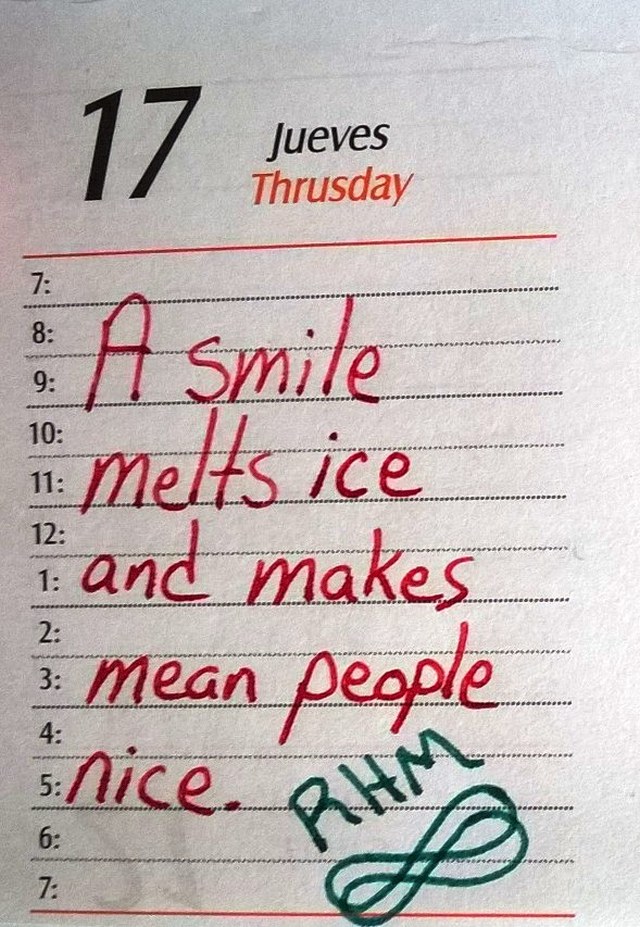 17 Jueves
Thrusday
7:
8:
9: A smile
10:
11: melts ice
12:
1: and makes
2:
3: mean people
4:
5: nice. RHM
6:
7: